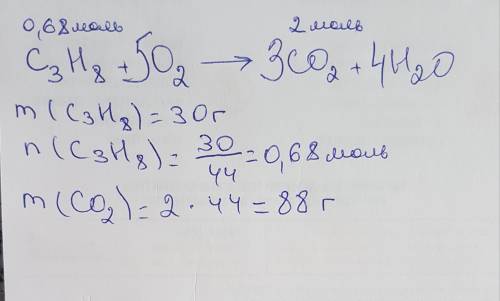 0,68 моль 2 моль
C₃H₈ + 5O₂ → 3CO₂ + 4H₂O
m (C₃H₈) = 30 г
n (C₃H₈) = 30/44 = 0,68 моль
m (CO₂) = 2 · 44 = 88 г